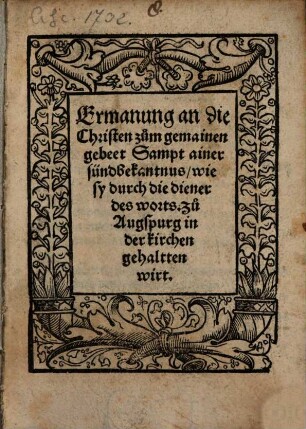 Ermanung an die
Christen zům gemainen
gebeet Sampt ainer
sündbekantnus/wie
sy durch die diener
des worts. Zů
Augspurg in
der kirchen
gehaltten
wirt.